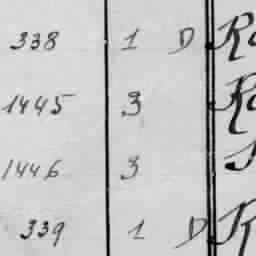 338 1 D
1445 3
1446 3
339 1 D